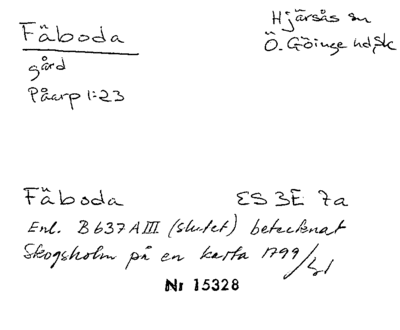 Fäboda
Hjärsås sn
Ö. Göinge hd, Sk
gård
Påarp 1:23
Fäboda ES 3E 7a
Enl. B637AIII (slutet) betecknat
Skogsholm på en karta 1799
Nr 15328